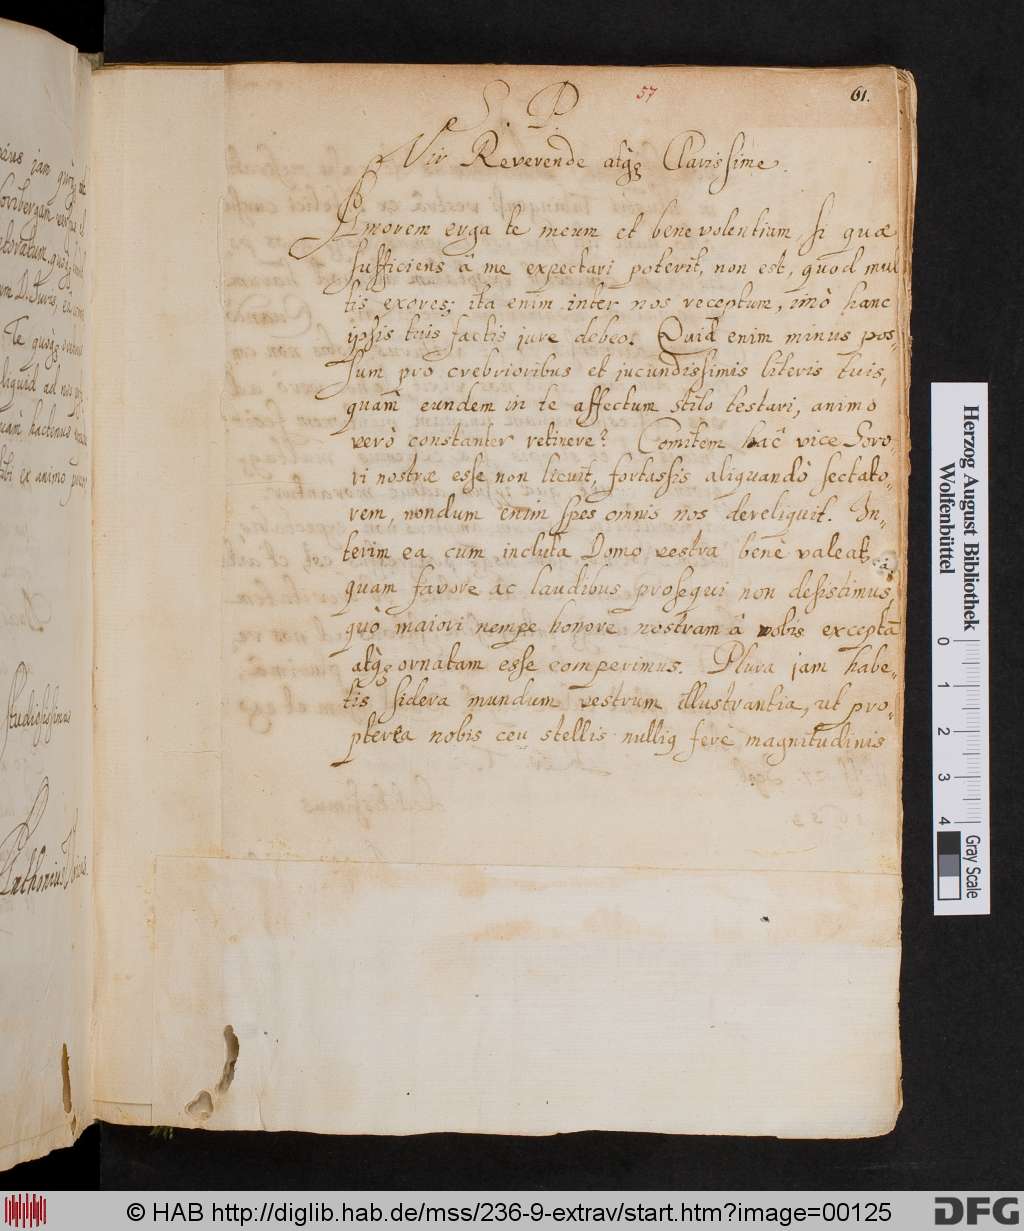 S. P.
57
61.
Vir Reverende atq́ꝫ Clarissime.
Amorem erga te meum et benevolentiam, si quæ
sufficiens â me expectari poterit, non est, quod mul
tis exores; ita enim inter nos receptum, imò hanc
ipsis tuis factis jure debeo. Quid enim minus pos-
sum pro crebrioribus et jucundissimis literis tuis,
quam eundem in te affectum stilo testari, animo
verò constanter retinere? Comitem hac vice Soro-
ri nostræ esse non licuit, fortassis aliquandò sectato-
rem, nondum enim spes omnis nos dereliquit. In-
terim ea cum inclutâ Domo vestra benè valeat,
quam favore ac laudibus prosequi non desistimus,
quò maiori nempe honore nostram â vobis exceptā
atq́ꝫ ornatam esse comperimus. Plura jam habe-
tis sidera mundum vestrum illustrantia, ut pro-
pterea nobis ceu stellis nulliq ferè magnitudinis
jam
Te
liquid ad nos
hactenus
ex animo
Studiosissimus
Herzog August Bibliothek
Wolfenbüttel
0
1
2
3
4
Gray Scale
© HAB http://diglib.hab.de/mss/236-9-extrav/start.htm?image=00125
DFG